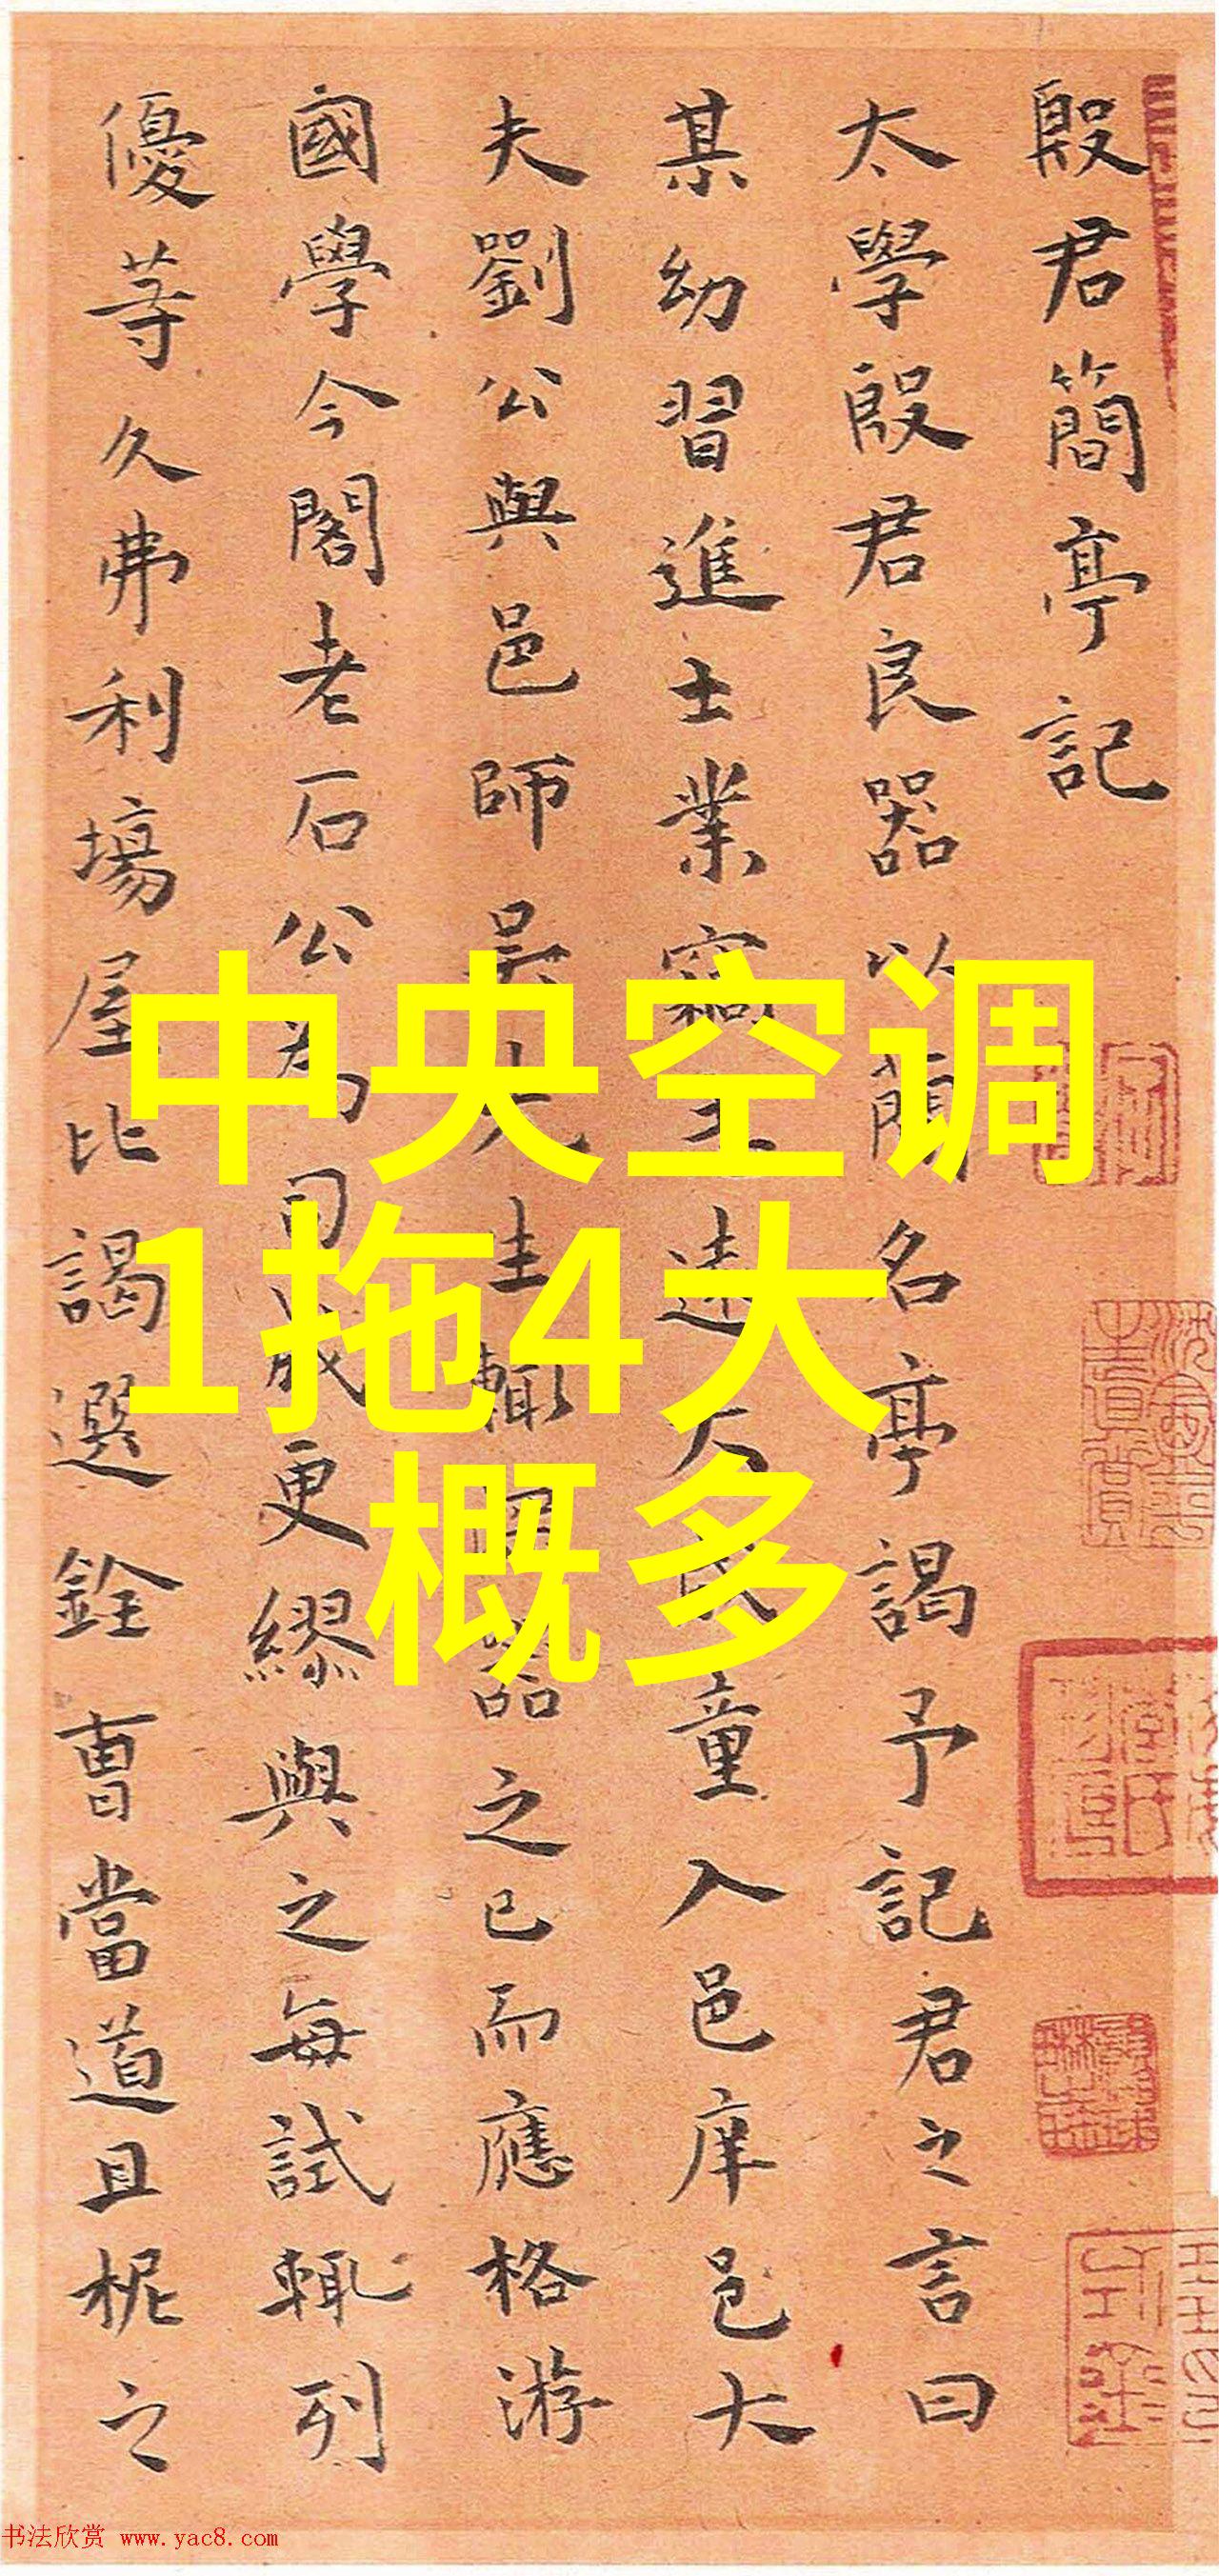 殷君簡亭記
太學殷君良器以蕳名亭謁予記君之言曰
某幼習進士業竊王達大成童入邑庠邑大
夫劉公與邑師吳先生輙器之已而應格游
國學今閣老石公為司成更繆與之每試輒列
優等久弗利場屋比謁選銓曹當道且柅之
中央空调
1拖4大
概多
书法欣赏 www.yac8.com